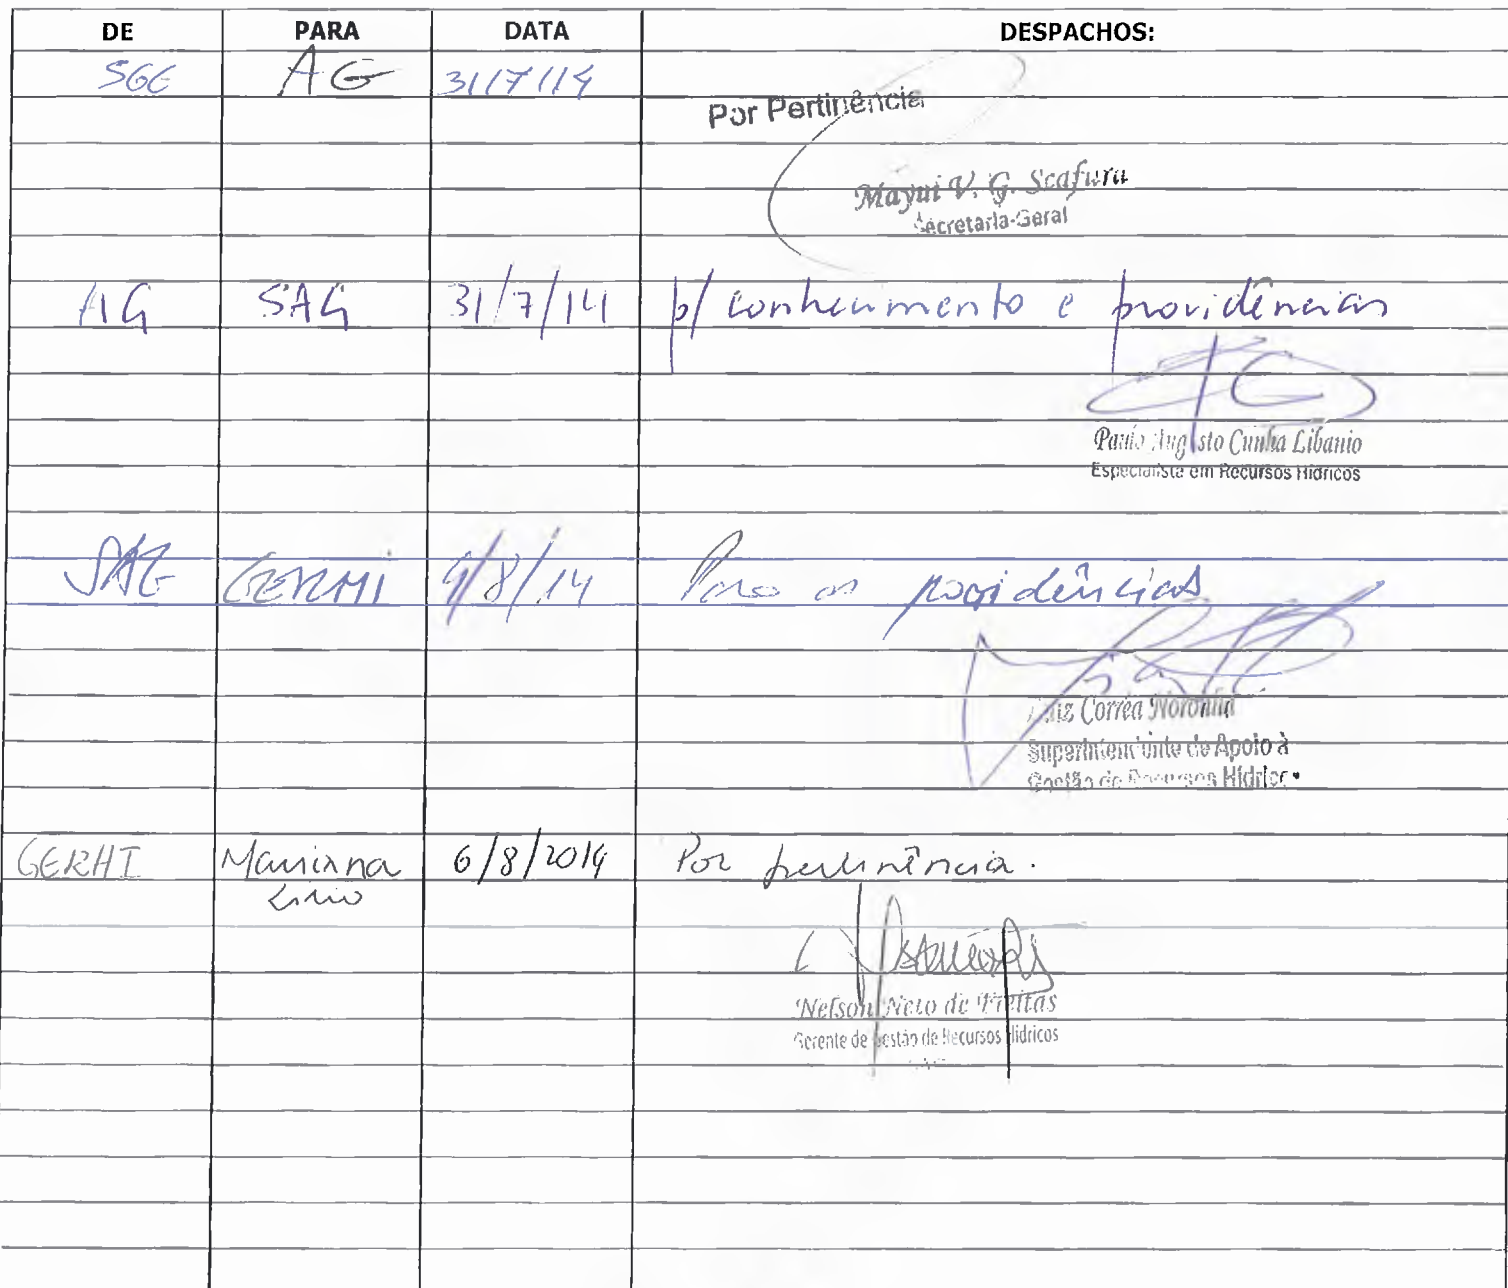 DE PARA DATA DESPACHOS:
SGE AG 31/7/14
Por Pertinência
Mayui V. G. Scafura
Secretaria-Geral
AG SAG 31/7/14 p/ conhecimento e providências
Paulo Augusto Cunha Libanio
Especialista em Recursos Hídricos
SAG GERHI 4/8/14 Para as providências
Luiz Corrêa Noronha
Superintendente de Apoio à
Gestão de Recursos Hídricos
GERHI Mariana 6/8/2014 Por pertinência.
Lírio
Nelson Neto de Freitas
Gerente de Gestão de Recursos Hídricos